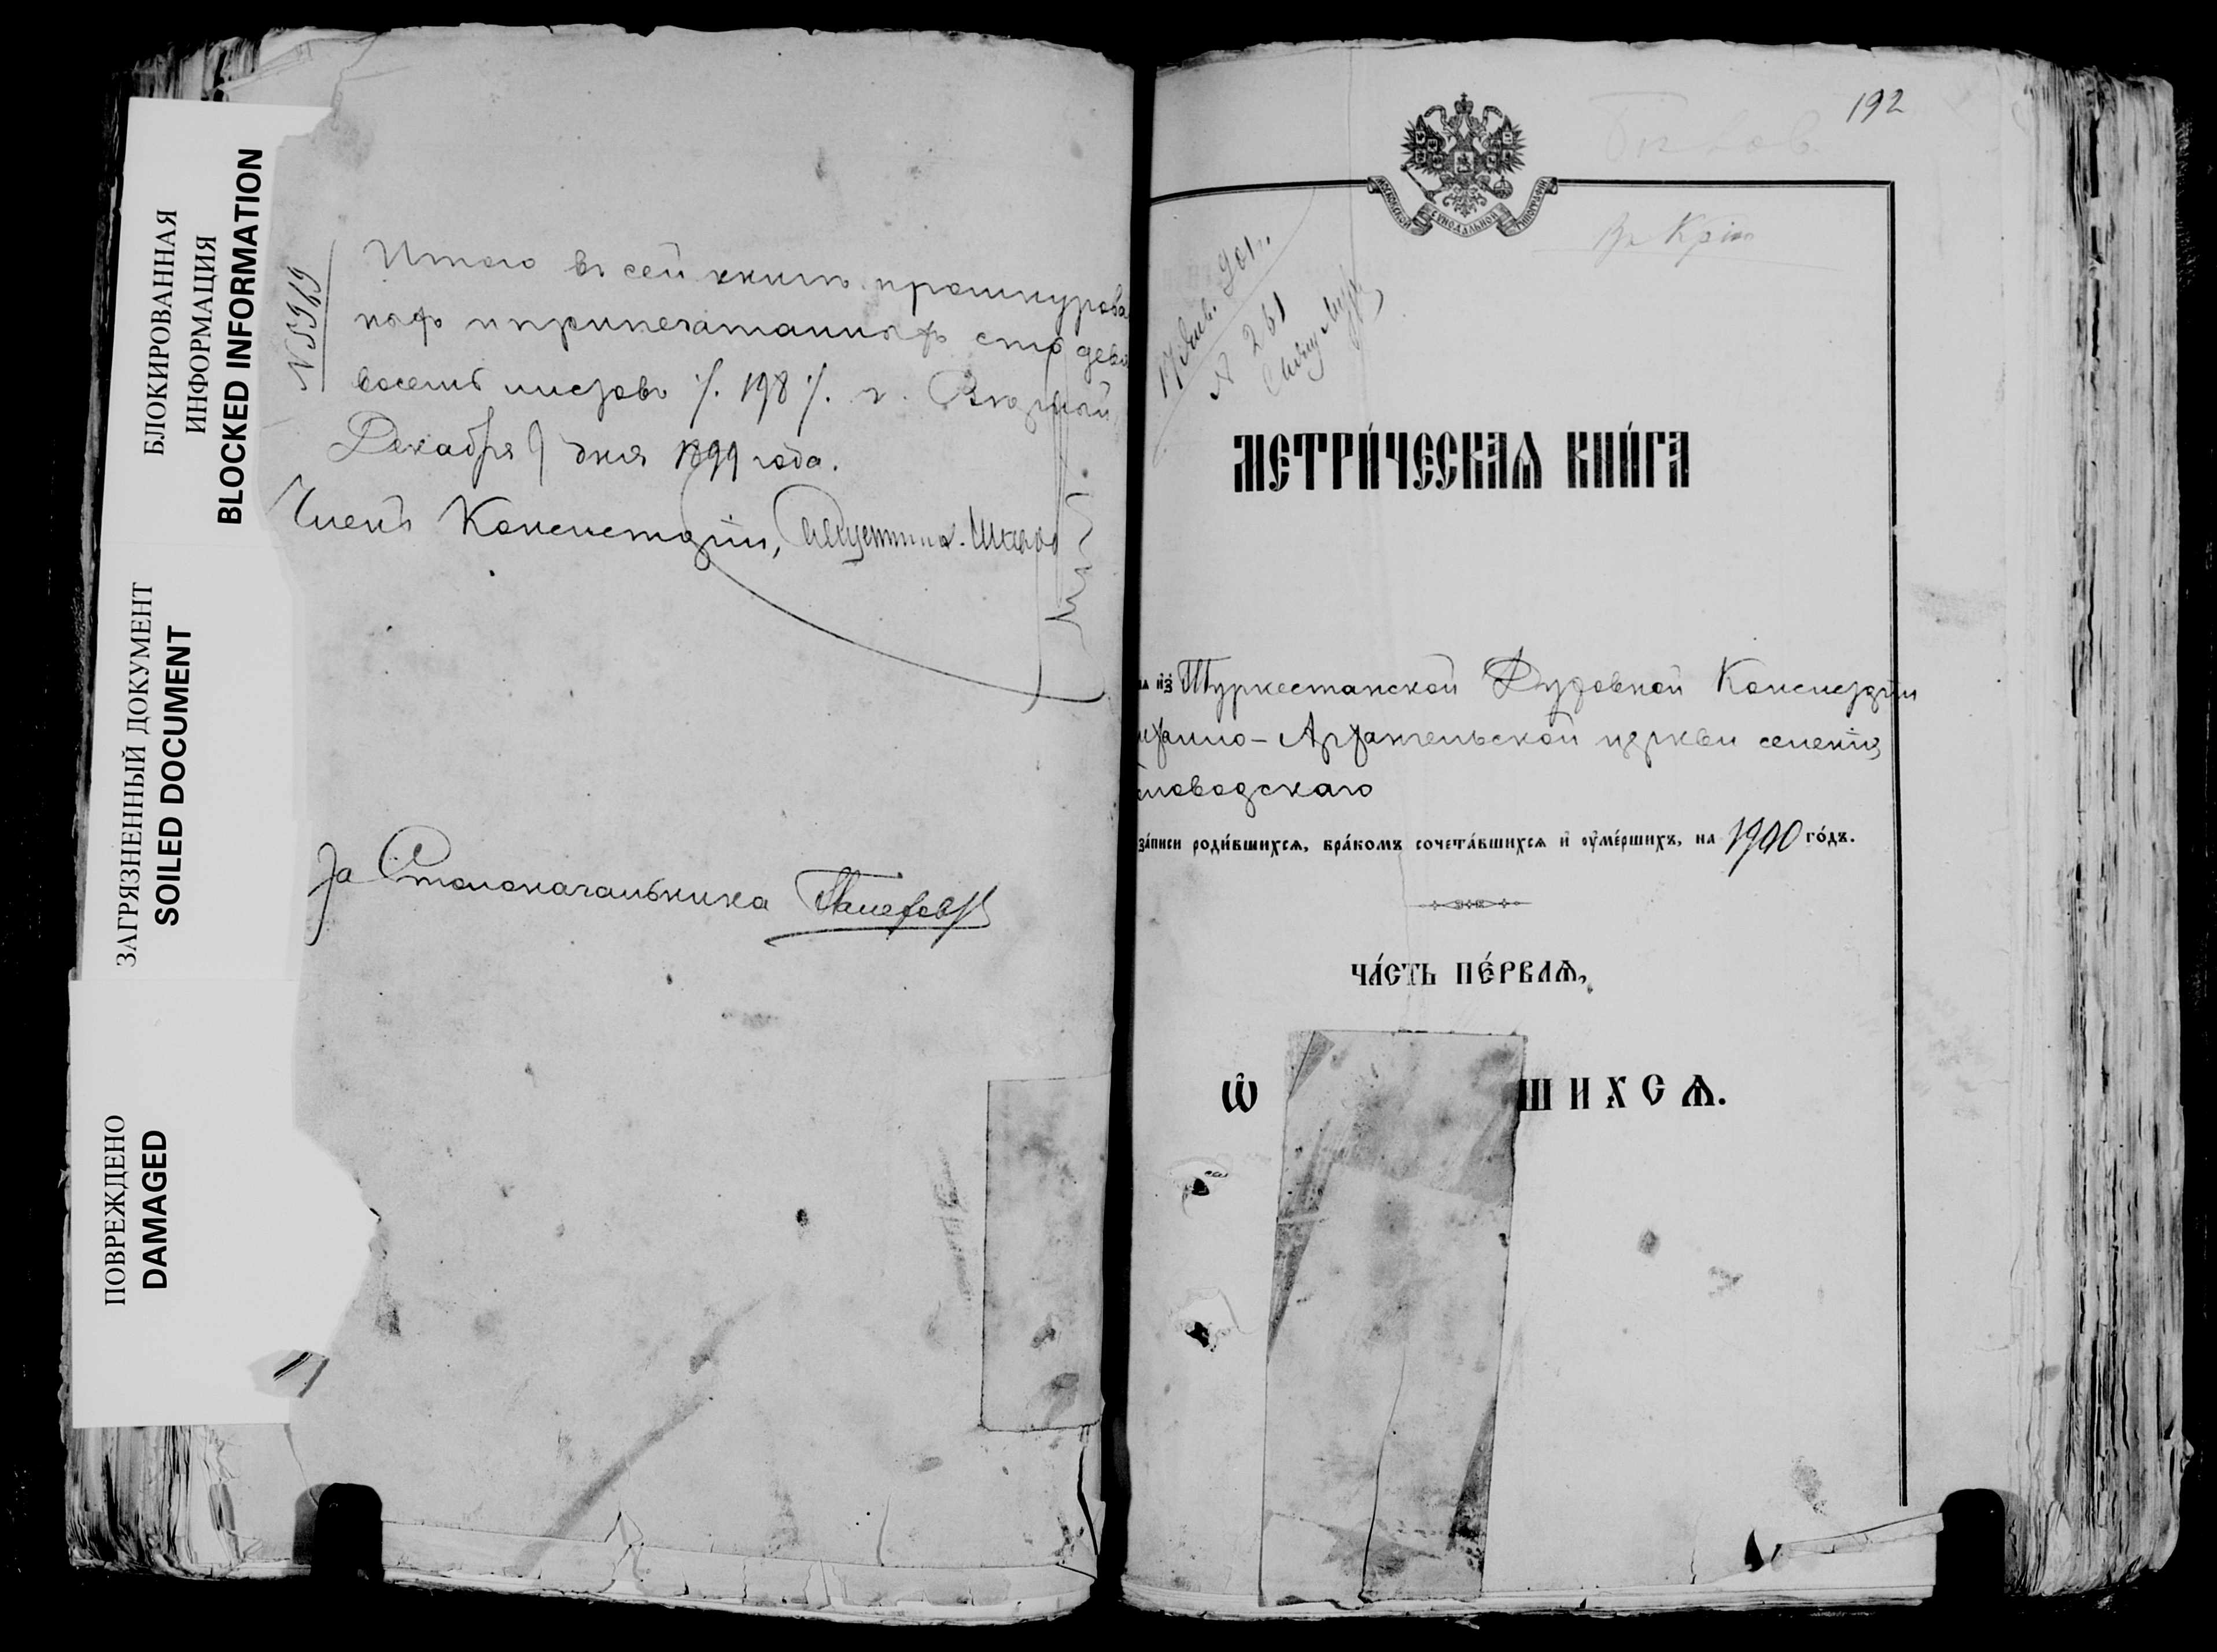 БЛОКИРОВАННАЯ
ИНФОРМАЦИЯ
BLOCKED INFORMATION
ЗАГРЯЗНЕННЫЙ ДОКУМЕНТ
SOILED DOCUMENT
ПОВРЕЖДЕНО
DAMAGED
N 5969
Итого въ сей книгѣ прошнурова
ныхъ и припечатанныхъ сто девя
восемь листовъ ·/. 198 ·/. г. Вѣрный
Декабря 9 дня 1899 года.
Членъ Консисторіи,
За Столоначальника
192
МОСКОВСКОЙ СѴНОДАЛЬНОЙ ТИПОГРАФІИ
17 Янв. 901 г.
№ 261
МЕТРИ́ЧЕСКАѦ КНИ́ГА
на из Туркестанской Духовной Консисторіи
ихаило-Архангельской церкви селенія
ловодскаго
за́писи роди́вшихсѧ, бра́комъ сочета́вшихсѧ и ᲂуме́ршихъ, на 1900 го́дъ.
ЧА́СТЬ ПЕ́РВАѦ,
Ѡ ШИХСѦ.